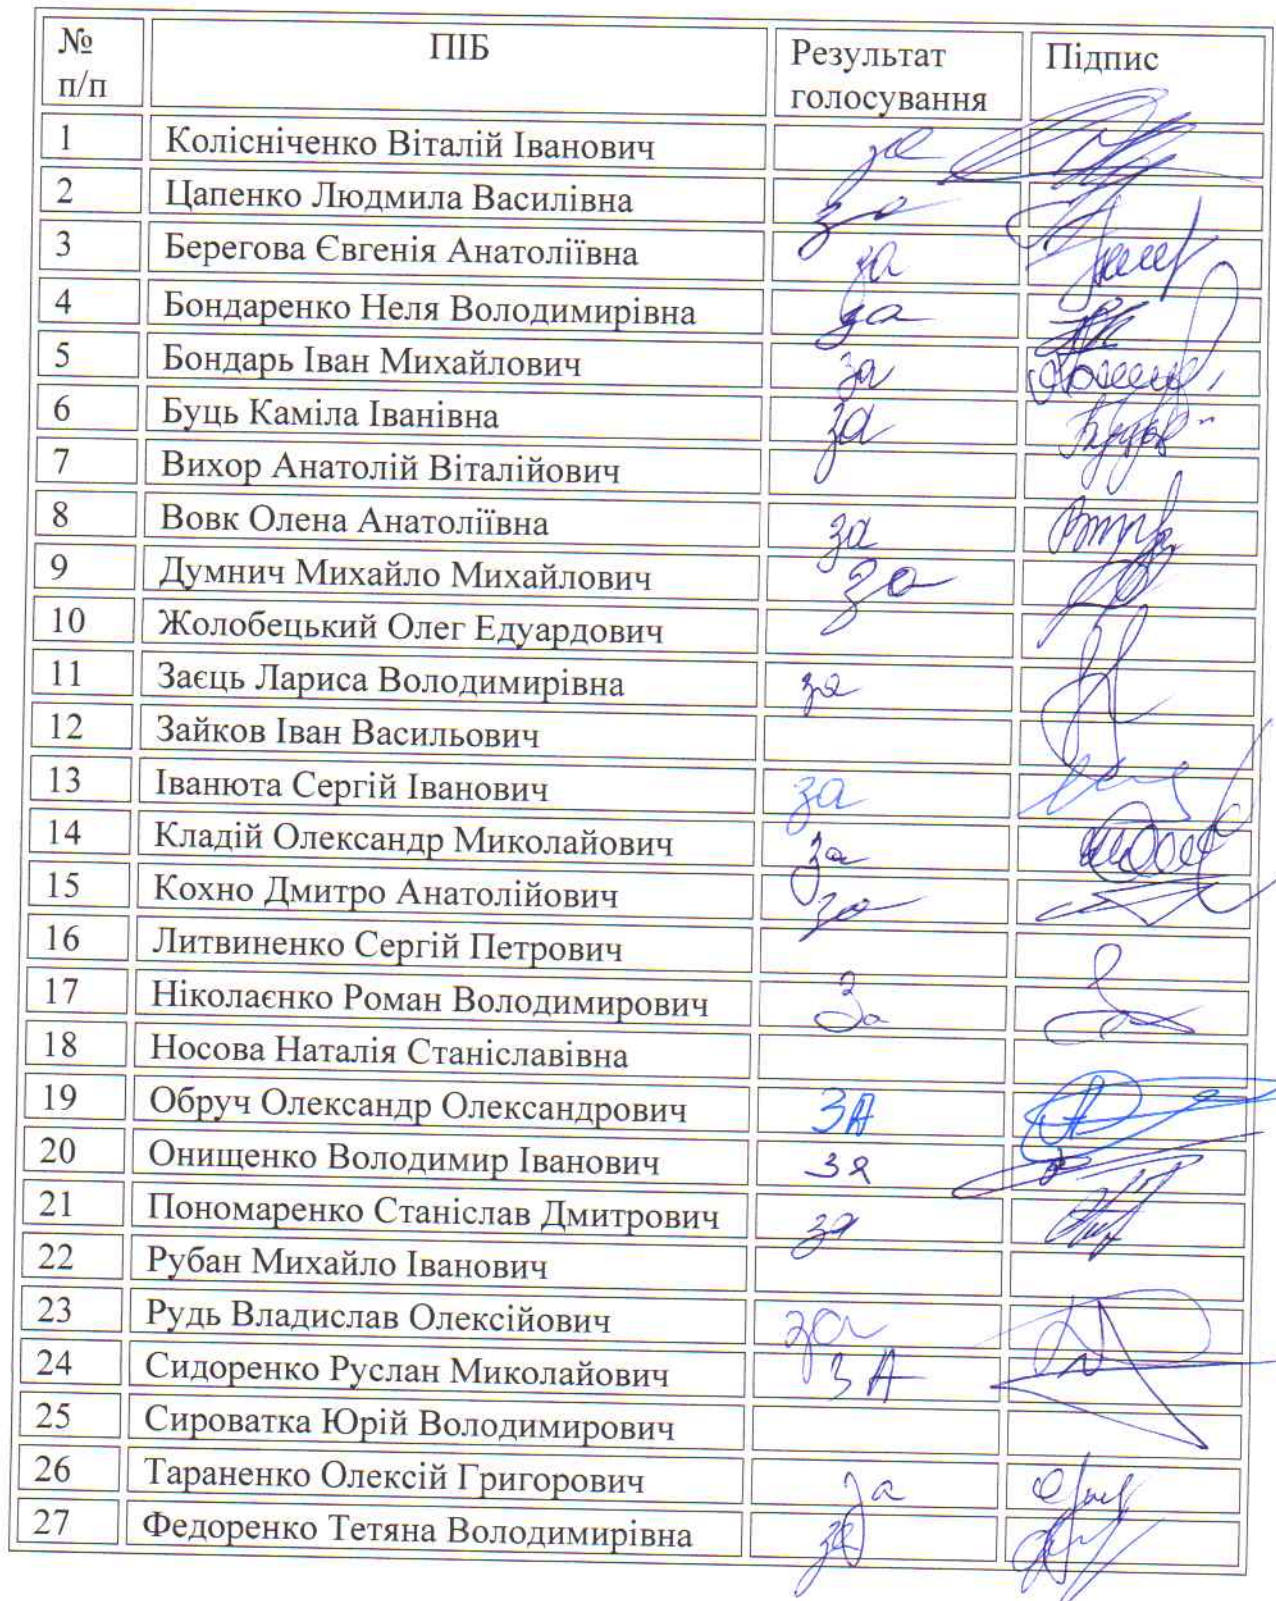 № п/п ПІБ Результат голосування Підпис
1 Колісніченко Віталій Іванович за
2 Цапенко Людмила Василівна за
3 Берегова Євгенія Анатоліївна за
4 Бондаренко Неля Володимирівна за
5 Бондарь Іван Михайлович за
6 Буць Каміла Іванівна за
7 Вихор Анатолій Віталійович
8 Вовк Олена Анатоліївна за
9 Думнич Михайло Михайлович за
10 Жолобецький Олег Едуардович
11 Заєць Лариса Володимирівна за
12 Зайков Іван Васильович
13 Іванюта Сергій Іванович за
14 Кладій Олександр Миколайович за
15 Кохно Дмитро Анатолійович за
16 Литвиненко Сергій Петрович
17 Ніколаєнко Роман Володимирович За
18 Носова Наталія Станіславівна
19 Обруч Олександр Олександрович ЗА
20 Онищенко Володимир Іванович за
21 Пономаренко Станіслав Дмитрович за
22 Рубан Михайло Іванович
23 Рудь Владислав Олексійович за
24 Сидоренко Руслан Миколайович ЗА
25 Сироватка Юрій Володимирович
26 Тараненко Олексій Григорович за
27 Федоренко Тетяна Володимирівна за